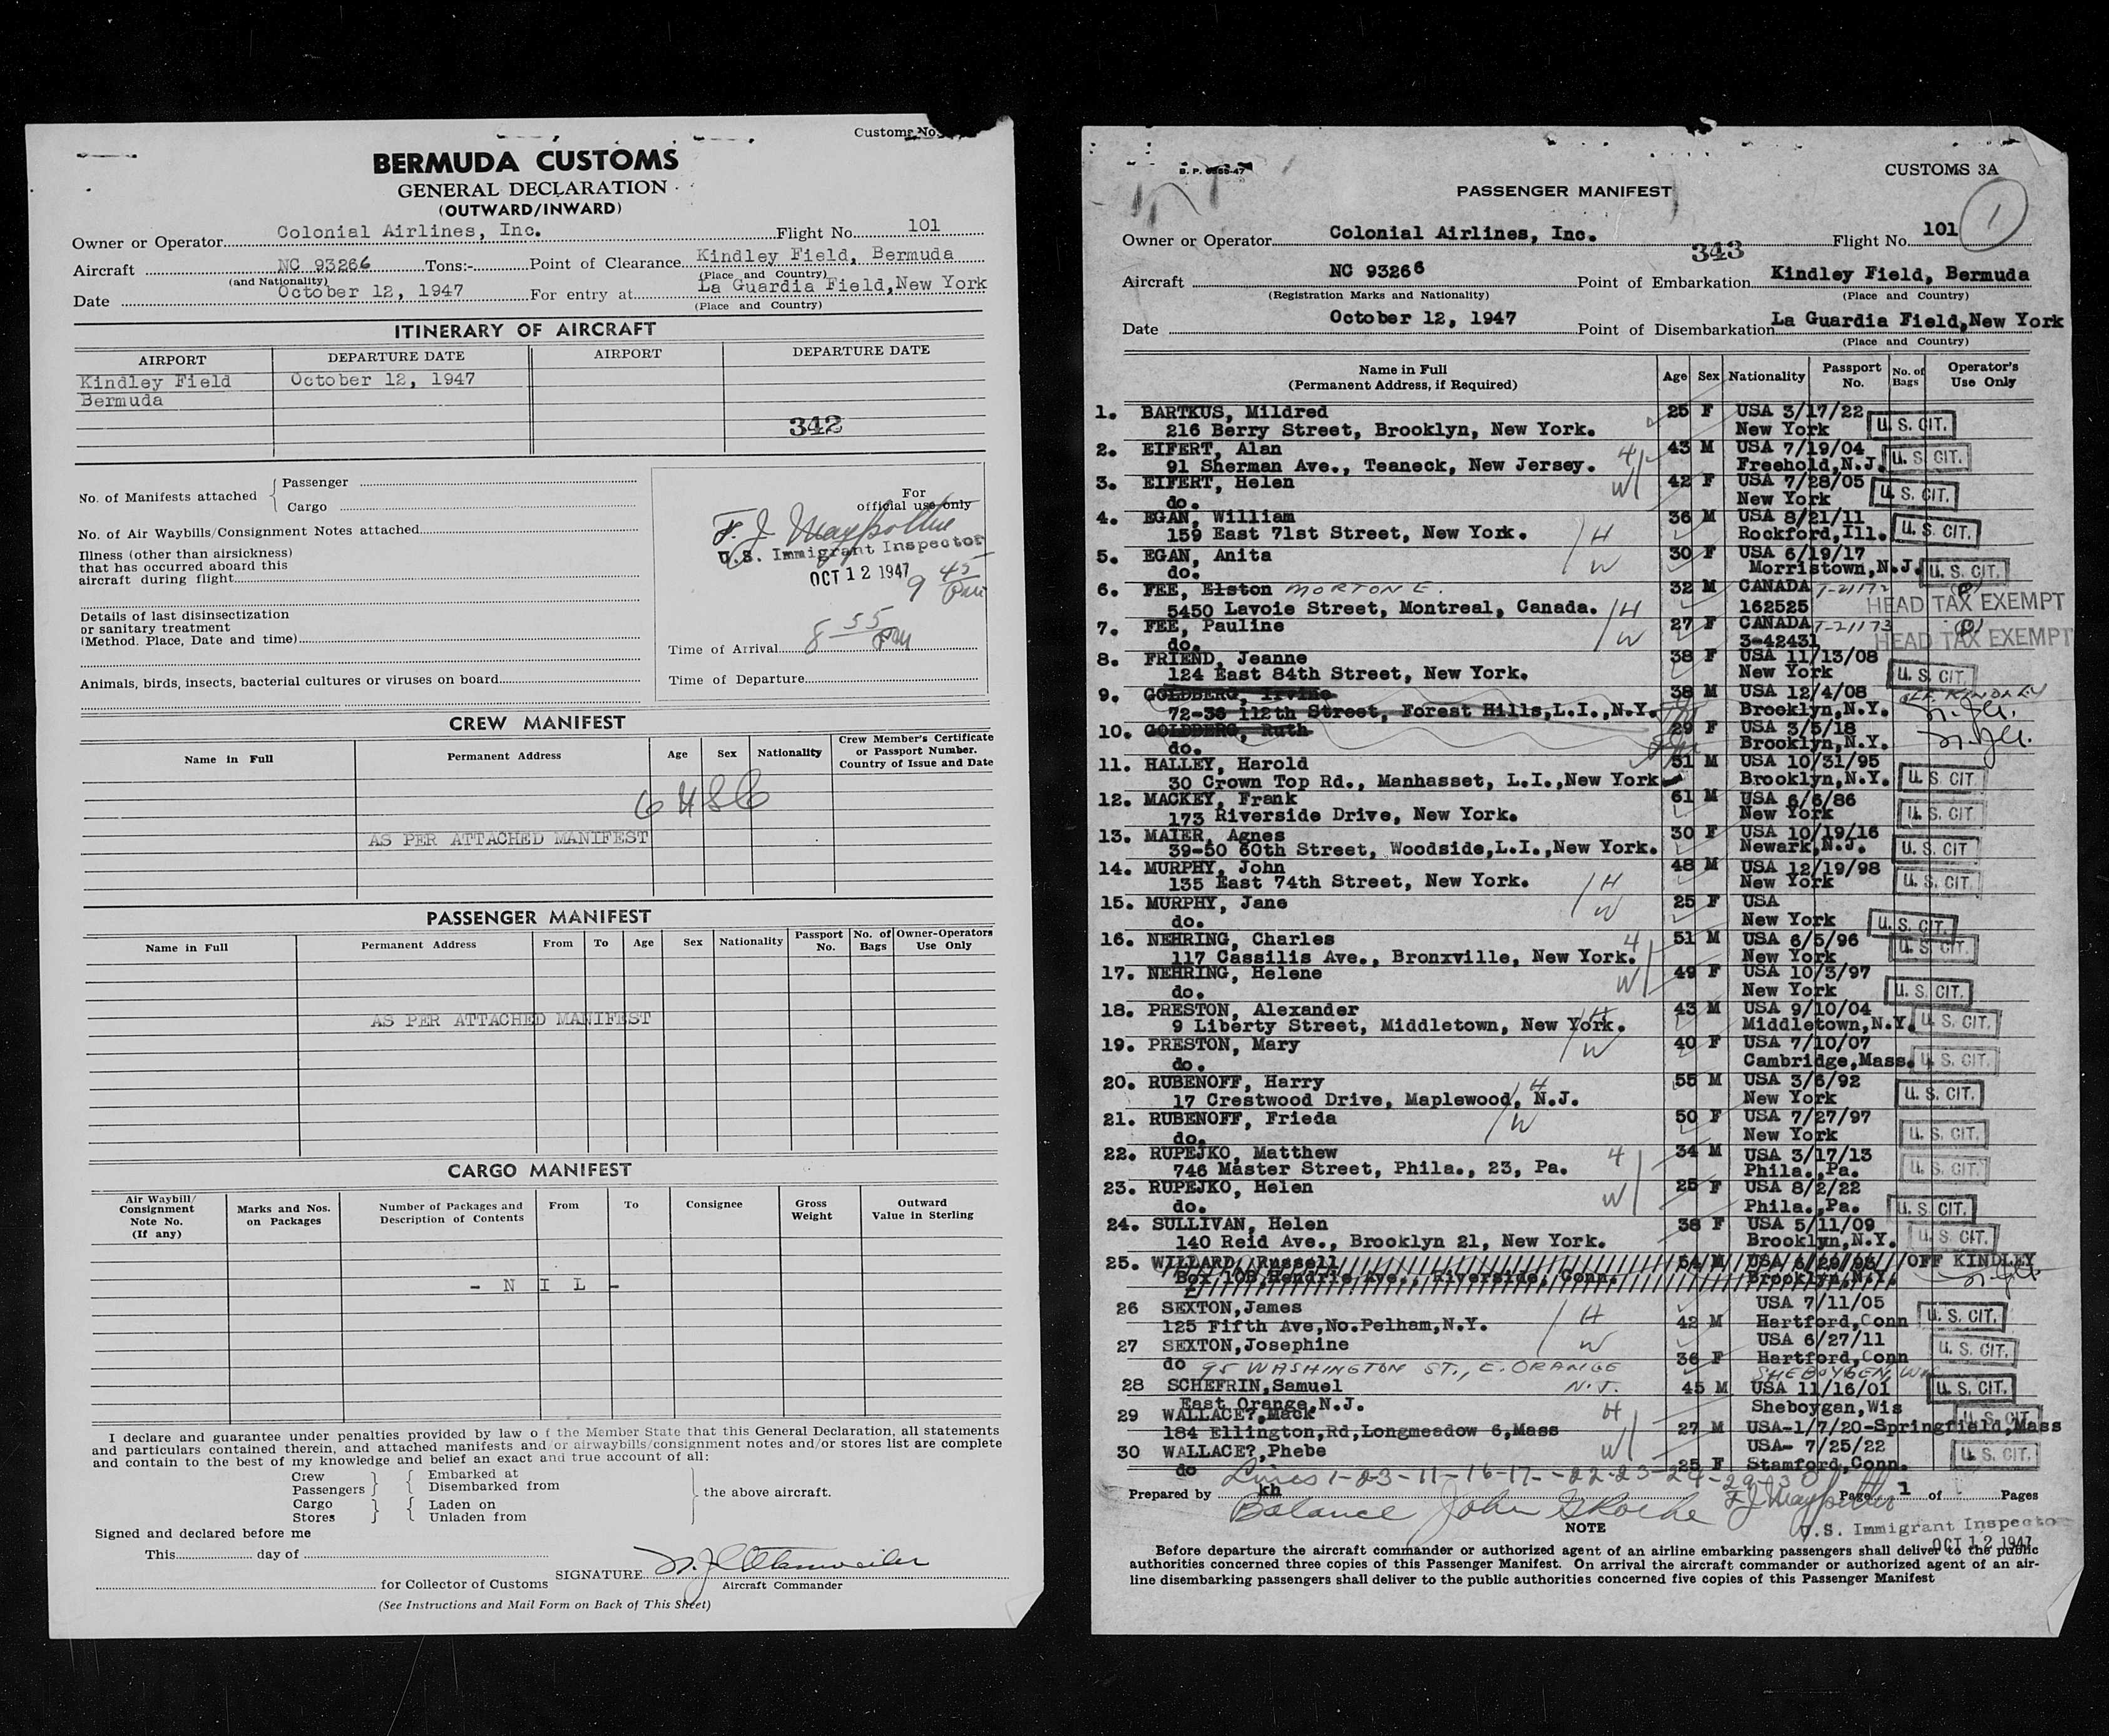 Customs No.
BERMUDA CUSTOMS
GENERAL DECLARATION
(OUTWARD/INWARD)
Owner or Operator Colonial Airlines, Inc. Flight No. 101
Aircraft NC 93266 Tons:- Point of Clearance Kindley Field, Bermuda
(and Nationality) (Place and Country)
Date October 12, 1947 For entry at La Guardia Field,New York
(Place and Country)
ITINERARY OF AIRCRAFT
AIRPORT DEPARTURE DATE AIRPORT DEPARTURE DATE
Kindley Field October 12, 1947
Bermuda
342
No. of Manifests attached { Passenger
Cargo
For
official use only
No. of Air Waybills/Consignment Notes attached
U.S. Immigrant Inspector
OCT 12 1947
9 45 pm
Illness (other than airsickness)
that has occurred aboard this
aircraft during flight
Details of last disinsectization
or sanitary treatment
(Method. Place, Date and time)
Time of Arrival 8 55 pm
Animals, birds, insects, bacterial cultures or viruses on board
Time of Departure
CREW MANIFEST
Name in Full Permanent Address Age Sex Nationality Crew Member's Certificate or Passport Number. Country of Issue and Date
6 USC
AS PER ATTACHED MANIFEST
PASSENGER MANIFEST
Name in Full Permanent Address From To Age Sex Nationality Passport No. No. of Bags Owner-Operators Use Only
AS PER ATTACHED MANIFEST
CARGO MANIFEST
Air Waybill/ Consignment Note No. (If any) Marks and Nos. on Packages Number of Packages and Description of Contents From To Consignee Gross Weight Outward Value in Sterling
- N I L -
I declare and guarantee under penalties provided by law o f the Member State that this General Declaration, all statements
and particulars contained therein, and attached manifests and/or airwaybills/consignment notes and/or stores list are complete
and contain to the best of my knowledge and belief an exact and true account of all:
Crew } { Embarked at
Passengers } { Disembarked from
Cargo } { Laden on
Stores } { Unladen from
} the above aircraft.
Signed and declared before me
This day of
SIGNATURE
for Collector of Customs Aircraft Commander
(See Instructions and Mail Form on Back of This Sheet)
B. P. 47
CUSTOMS 3A
PASSENGER MANIFEST
1
Owner or Operator Colonial Airlines, Inc. 343 Flight No. 101
Aircraft NC 93266 Point of Embarkation Kindley Field, Bermuda
(Registration Marks and Nationality) (Place and Country)
Date October 12, 1947 Point of Disembarkation La Guardia Field,New York
(Place and Country)
Name in Full (Permanent Address, if Required) Age Sex Nationality Passport No. No. of Bags Operator's Use Only
1. BARTKUS, Mildred 25 F USA 3/17/22
216 Berry Street, Brooklyn, New York. New York U. S. CIT.
2. EIFERT, Alan H 43 M USA 7/19/04
91 Sherman Ave., Teaneck, New Jersey. Freehold,N.J. U. S. CIT.
3. EIFERT, Helen W 42 F USA 7/28/05
do. New York U. S. CIT.
4. EGAN, William 36 M USA 8/21/11
159 East 71st Street, New York. H Rockford,Ill. U. S. CIT.
5. EGAN, Anita 30 F USA 6/19/17
do. W Morristown,N.J. U. S. CIT.
6. FEE, Elston MORTON E. 32 M CANADA T-21172
5450 Lavoie Street, Montreal, Canada. H 162525 HEAD TAX EXEMPT
7. FEE, Pauline 27 F CANADA T-21173
do. W 3-42431 HEAD TAX EXEMPT
8. FRIEND, Jeanne 38 F USA 11/13/08
124 East 84th Street, New York. New York U. S. CIT.
9. GOLDBERG, Irvine 38 M USA 12/4/08 OFF KINDLEY
72-36 112th Street, Forest Hills,L.I.,N.Y. Brooklyn,N.Y.
10. GOLDBERG, Ruth 29 F USA 3/5/18
do. Brooklyn,N.Y.
11. HALLEY, Harold 51 M USA 10/31/95
30 Crown Top Rd., Manhasset, L.I.,New York Brooklyn,N.Y. U. S. CIT.
12. MACKEY, Frank 61 M USA 6/6/86
173 Riverside Drive, New York. New York U. S. CIT.
13. MAIER, Agnes 30 F USA 10/19/16
39-50 60th Street, Woodside,L.I.,New York. Newark,N.J. U. S. CIT
14. MURPHY, John 48 M USA 12/19/98
135 East 74th Street, New York. H New York U. S. CIT.
15. MURPHY, Jane W 25 F USA
do. New York U. S. CIT.
16. NEHRING, Charles H 51 M USA 6/5/96
117 Cassilis Ave., Bronxville, New York. New York U. S. CIT.
17. NEHRING, Helene W 49 F USA 10/3/97
do. New York U. S. CIT.
18. PRESTON, Alexander H 43 M USA 9/10/04
9 Liberty Street, Middletown, New York. Middletown,N.Y. U. S. CIT.
19. PRESTON, Mary W 40 F USA 7/10/07
do. Cambridge,Mass. U. S. CIT.
20. RUBENOFF, Harry H 55 M USA 3/6/92
17 Crestwood Drive, Maplewood, N.J. New York U. S. CIT.
21. RUBENOFF, Frieda W 50 F USA 7/27/97
do. New York U. S. CIT.
22. RUPEJKO, Matthew H 34 M USA 3/17/13
746 Master Street, Phila., 23, Pa. Phila.,Pa. U. S. CIT.
23. RUPEJKO, Helen W 25 F USA 8/2/22
do. Phila.,Pa. U. S. CIT.
24. SULLIVAN, Helen 38 F USA 5/11/09
140 Reid Ave., Brooklyn 21, New York. Brooklyn,N.Y. U. S. CIT.
25. WILLARD, Russell 54 M USA OFF KINDLEY
Box 10B,Hendrie Ave., Riverside, Conn. Brooklyn,N.Y.
26 SEXTON,James H USA 7/11/05
125 Fifth Ave,No.Pelham,N.Y. 42 M Hartford,Conn U. S. CIT.
27 SEXTON,Josephine W USA 6/27/11
do 36 F Hartford,Conn U. S. CIT.
95 WASHINGTON ST., E. ORANGE N.J. SHEBOYGEN, WIS
28 SCHEFRIN,Samuel 45 M USA 11/16/01 U. S. CIT.
East Orange,N.J. Sheboygan,Wis
29 WALLACE?,Mack H U. S. CIT.
184 Ellington,Rd,Longmeadow 6,Mass 27 M USA-1/7/20-Springfield,Mass
30 WALLACE?,Phebe W USA- 7/25/22
do 25 F Stamford,Conn. U. S. CIT.
Lines 1-23-11-16-17--22-23-24-29-30
Prepared by kh Page 1 of Pages
Balance
NOTE
U.S. Immigrant Inspecto
OCT 12 1947
Before departure the aircraft commander or authorized agent of an airline embarking passengers shall deliver to the public
authorities concerned three copies of this Passenger Manifest. On arrival the aircraft commander or authorized agent of an air-
line disembarking passengers shall deliver to the public authorities concerned five copies of this Passenger Manifest